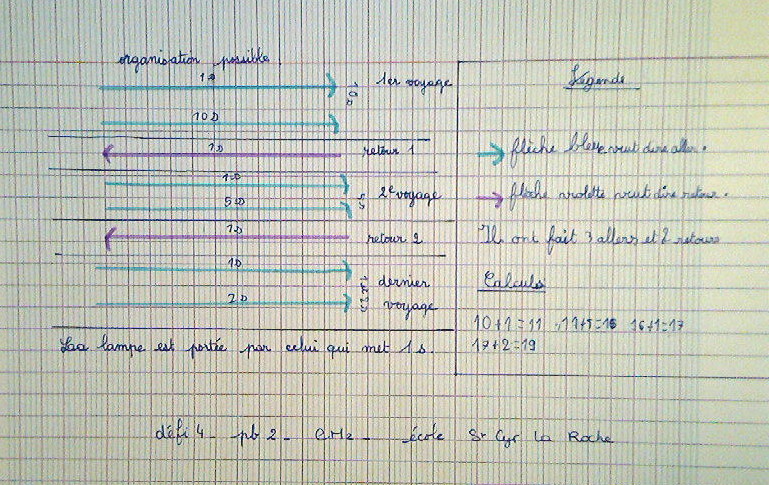 organisation possible
1 s
10 s
10 s
1er voyage
1 s
retour 1
1 s
5 s
5 s
2e voyage
1 s
retour 2
1 s
2 s
dernier
voyage
La lampe est portée par celui qui met 1 s.
Légende
flèche bleue veut dire aller.
flèche violette veut dire retour.
Ils ont fait 3 allers et 2 retours
Calculs
10+1=11 , 11+5=16 16+1=17
17+2=19
défi 4 - pb 2 - CM2 - école St Cyr La Roche